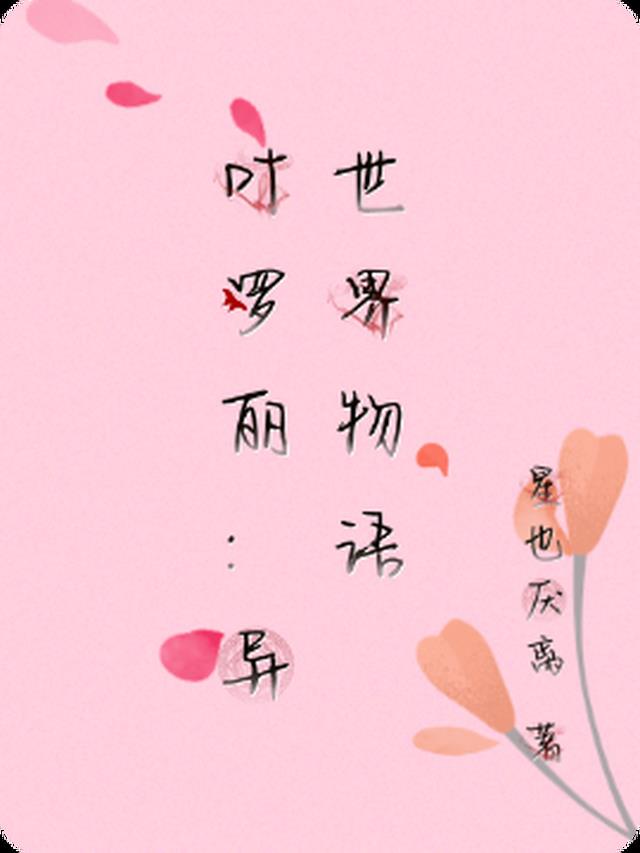 叶罗丽:异
世界物语
星也厌离 著